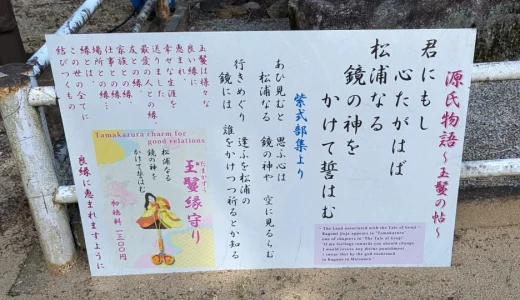 源氏物語～玉鬘の帖～
君にもし
心たがはば
松浦なる
鏡の神を
かけて誓はむ
紫式部集より
あひ見むと 思ふ心は
松浦なる 鏡の神や 空に見るらむ
行きめぐり 逢ふを松浦の
鏡には 誰をかけつつ祈るとか知る
玉鬘は様々な
良い縁に
恵まれ、
幸せな生涯を
送りました。
最愛の人との縁、
友との縁…
家族との縁
仕事との縁…
場所との縁…
縁とは、
この世の全てに
結びつくもの
良縁に恵まれますように
Tamakazura charm for
good relations
たまかずら
玉鬘縁守り
松浦なる
鏡の神を
かけて誓はむ
初穂料 一三〇〇円
~ The Land associated with the Tale of Genji ~
Kagami Jinja appears in "Tamakazura"
one of chapters in "The Tale of Genji"
"If my feelings towards you should change,
I would receive any divine punishment
I swear that by the god enshrined
in Kagami in Matsuura."